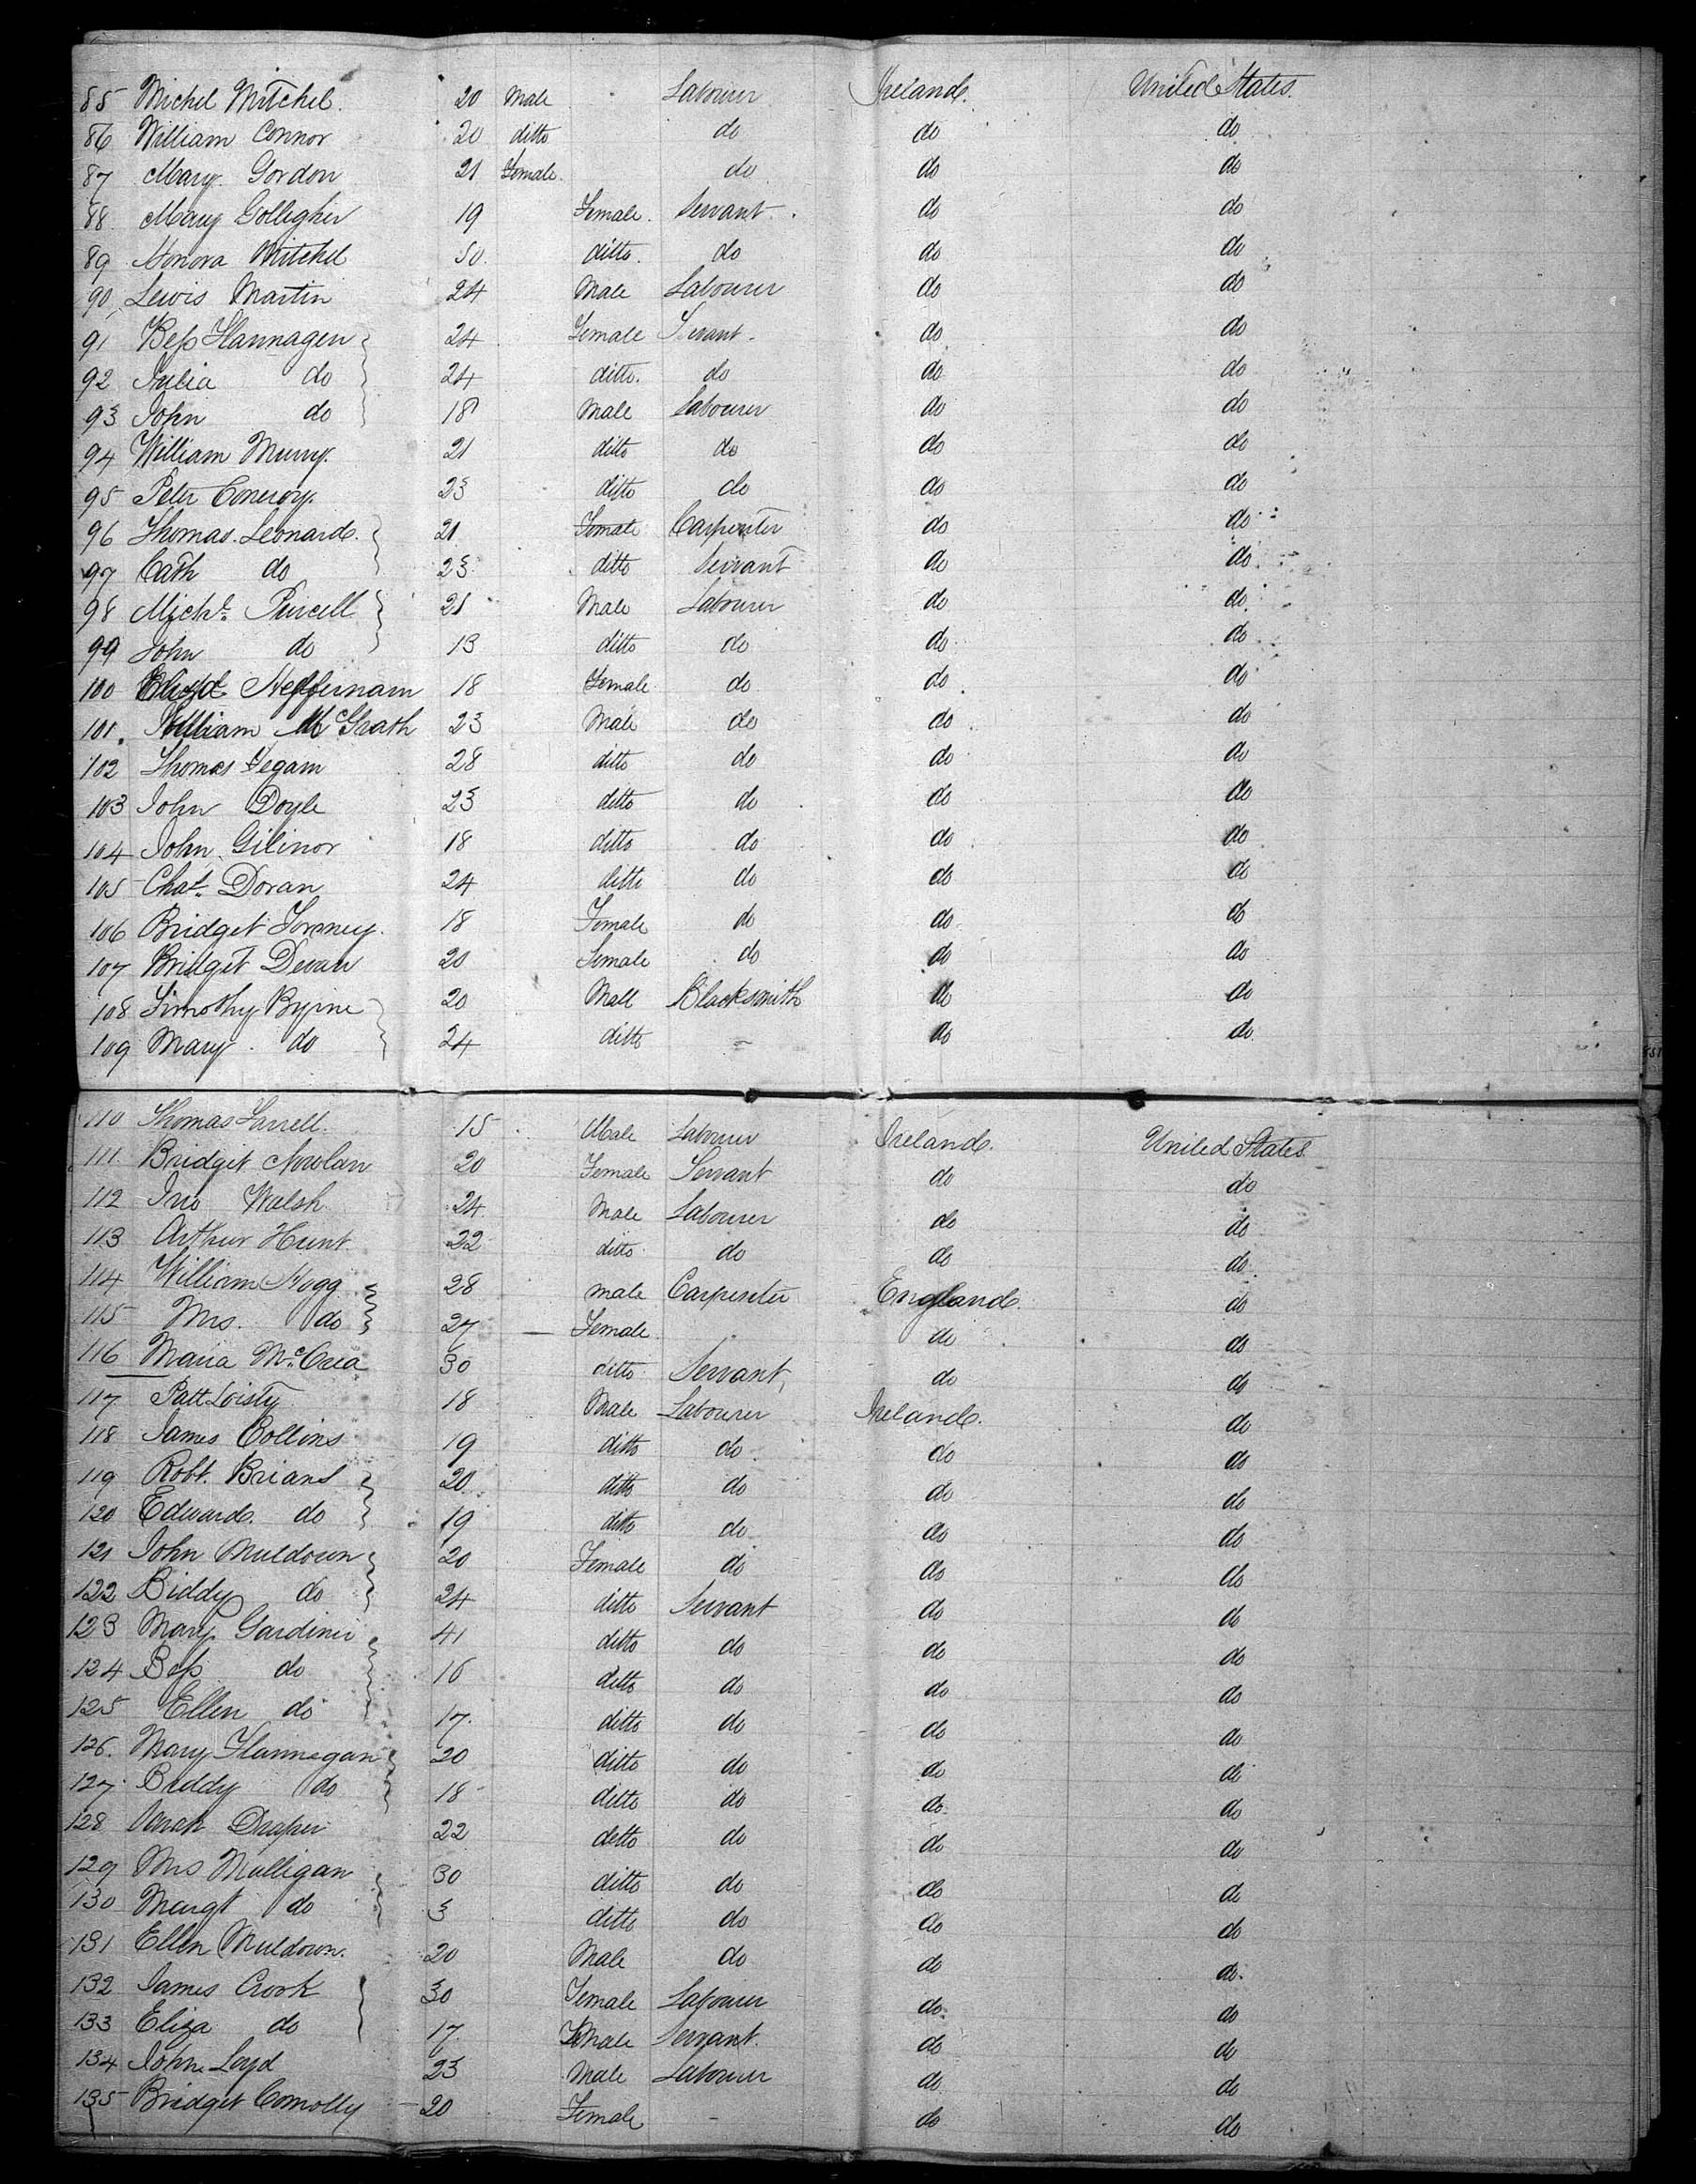 85 Michel Mitchel. 20 Male Labourer Ireland. United States.
86 William Connor 20 ditto do do do
87 Mary Gordon 21 Female. do do do
88 Mary Gollegher 19 Female. Servant do do
89 Honora Mitchel 50 ditto. do do do
90 Lewis Martin 24 Male Labourer do do
91 Bess Flannagen 24 Female Servant. do do
92 Julia do 24 ditto. do do do
93 John do 18 Male Labourer do do
94 William Murry. 21 ditto do do do
95 Peter Coneroy. 23 ditto do do do
96 Thomas Leonard. 21 Female Carpenter do do
97 Cath do 23 ditto Servant do do
98 Michl. Purcell 21 Male Labourer do do
99 John do 13 ditto do do do
100 Heffernam 18 Female do do do
101. William McGrath 23 Male do do do
102 Thomas Fegam 28 ditto do do do
103 John Doyle 23 ditto do do do
104 John Gilinor 18 ditto do do do
105 Chas. Doran 24 ditto do do do
106 Bridget 18 Female do do do
107 Bridget Devan 20 Female do do do
108 Timothy Byrne 20 Male Blacksmith do do
109 Mary do 24 ditto do do
110 Thomas Farrell. 15 Male Labourer Ireland. United States
111 Bridget Nowlan 20 Female Servant do do
112 Jno Walsh 24 Male Labourer do do
113 Arthur Hunt 22 ditto do do do
114 William Hogg 28 male Carpenter England. do
115 Mrs. do 27 — Female do do
116 Maria McCrea 30 ditto Servant do do
117 Patt Loisty 18 Male Labourer Ireland. do
118 James Collins 19 ditto do do do
119 Robt. Brians 20 ditto do do do
120 Edward. do 19 ditto do do do
121 John Muldown 20 Female do do do
122 Biddy do 24 ditto Servant do do
123 Mary Gardiner 41 ditto do do do
124 Bess do 16 ditto do do do
125 Ellen do 17 ditto do do do
126. Mary Flannegan 20 ditto do do do
127 Biddy do 18 ditto do do do
128 Sarah Draper 22 ditto do do do
129 Mrs Mulligan 30 ditto do do do
130 Margt do 3 ditto do do do
131 Ellen Muldown. 20 Male do do do
132 James Crook 30 Female Labourer do do
133 Eliza do 17 Female Servant. do do
134 John Loyd 23 Male Labourer do do
135 Bridget Connolly 20 Female - do do